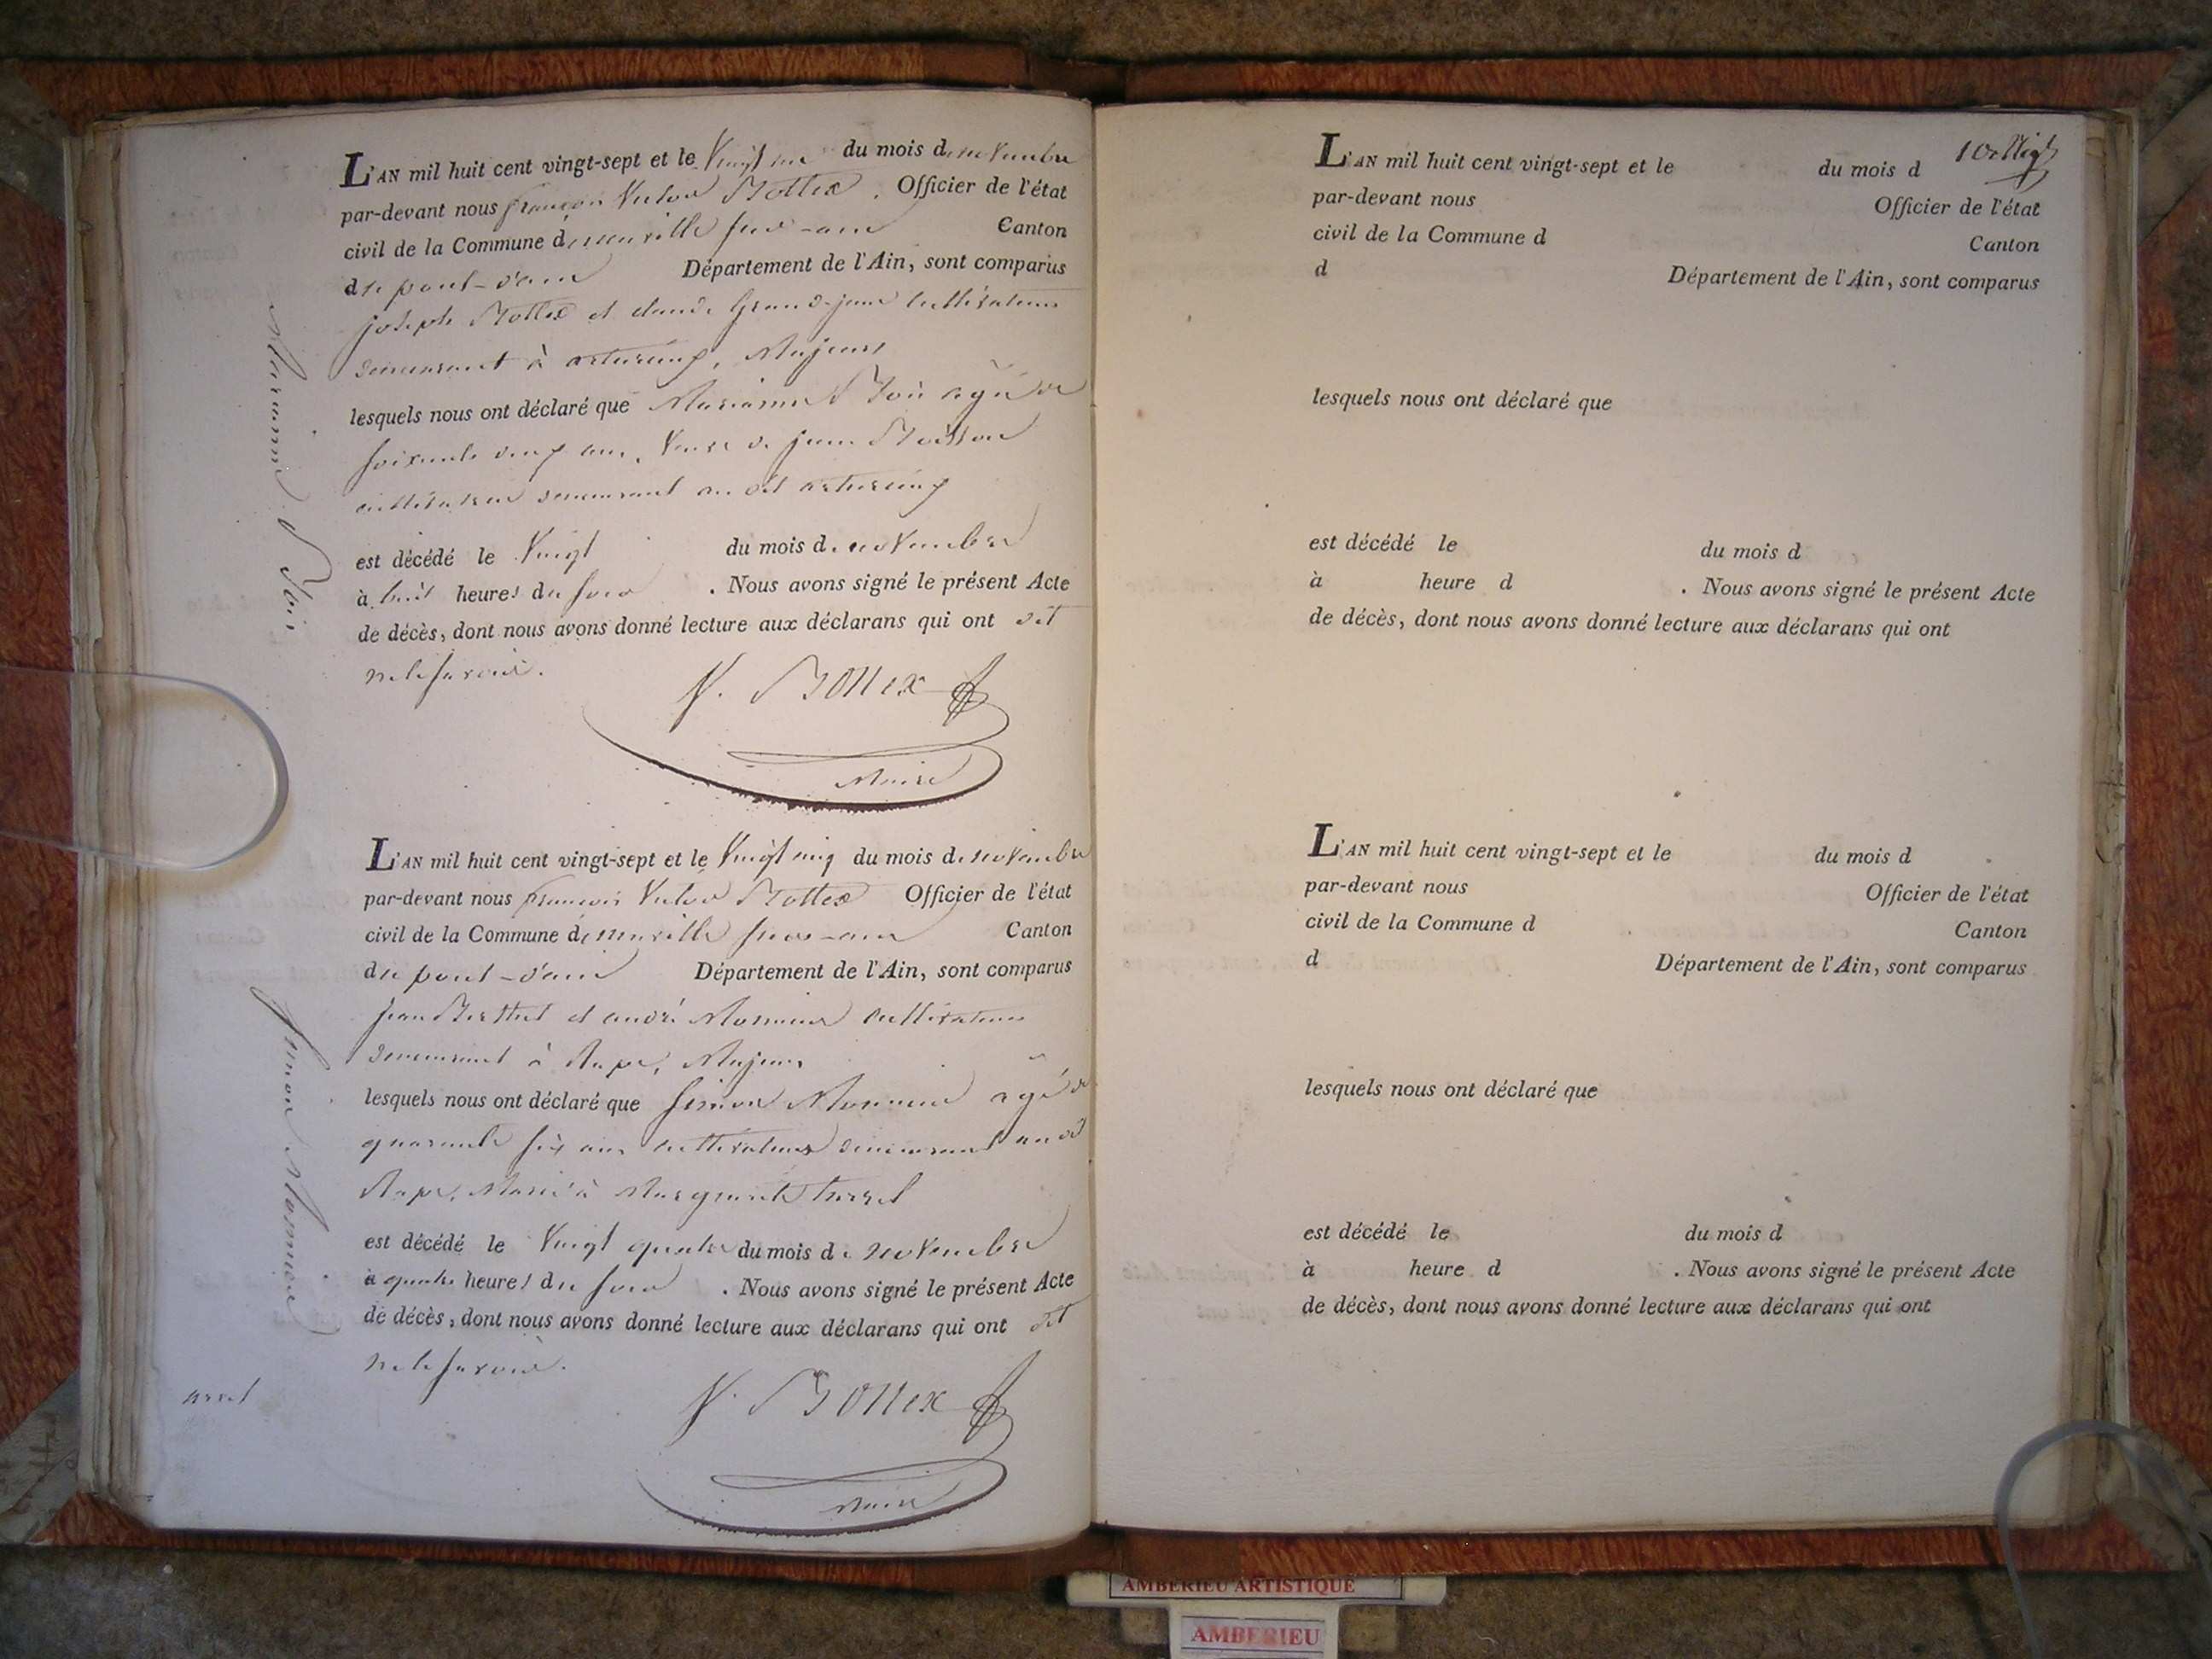 L'AN mil huit cent vingt-sept et le Vingt un du mois de novembre
par-devant nous françois Victor Bottex . Officier de l'état
civil de la Commune de neuville sur-ain Canton
de pont-d'ain Département de l'Ain, sont comparus
joseph Bottex et claude Grand-jean cultivateurs
demeurant à , Majeurs
lesquels nous ont déclaré que Marianne agée de
soixante cinq ans, Veuve de jean
cultivateur demeurant au dit
est décédé le Vingt du mois de novembre
à huit heures du soir . Nous avons signé le présent Acte
de décès, dont nous avons donné lecture aux déclarans qui ont dit
ne le savoir.
V. Bottex
Maire
Marianne
L'AN mil huit cent vingt-sept et le Vingt cinq du mois de novembre
par-devant nous françois Victor Bottex Officier de l'état
civil de la Commune de neuville sur-ain Canton
de pont-d'ain Département de l'Ain, sont comparus
jean et andré Monnier cultivateurs
demeurant à , Majeurs
lesquels nous ont déclaré que simon Monnier agé de
quarante six ans cultivateur demeurant au dt
Marié à Marguerite
est décédé le Vingt quatre du mois de novembre
à quatre heures du soir . Nous avons signé le présent Acte
de décès, dont nous avons donné lecture aux déclarans qui ont dit
ne le savoir.
V. Bottex
Maire
simon Monnier
L'AN mil huit cent vingt-sept et le du mois d
par-devant nous Officier de l'état
civil de la Commune d Canton
d Département de l'Ain, sont comparus
lesquels nous ont déclaré que
est décédé le du mois d
à heure d . Nous avons signé le présent Acte
de décès, dont nous avons donné lecture aux déclarans qui ont
L'AN mil huit cent vingt-sept et le du mois d
par-devant nous Officier de l'état
civil de la Commune d Canton
d Département de l'Ain, sont comparus
lesquels nous ont déclaré que
est décédé le du mois d
à heure d . Nous avons signé le présent Acte
de décès, dont nous avons donné lecture aux déclarans qui ont
AMBERIEU ARTISTIQUE
AMBERIEU